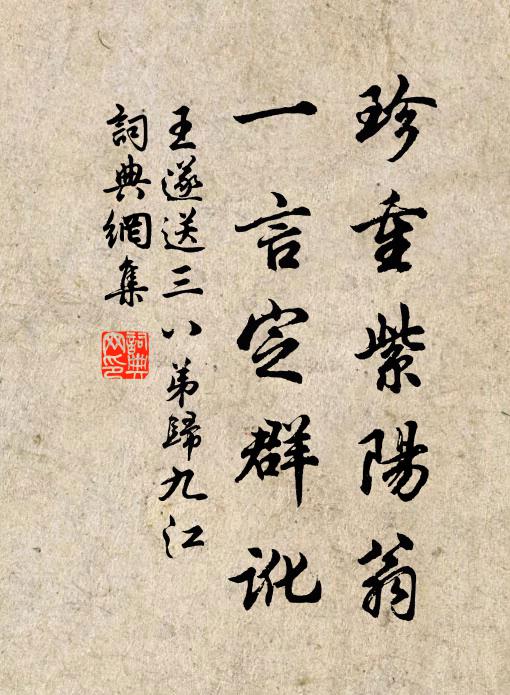 珍重紫陽翁
一言定群訛
王遂送三八弟歸九江
詞典網集
詞典网印